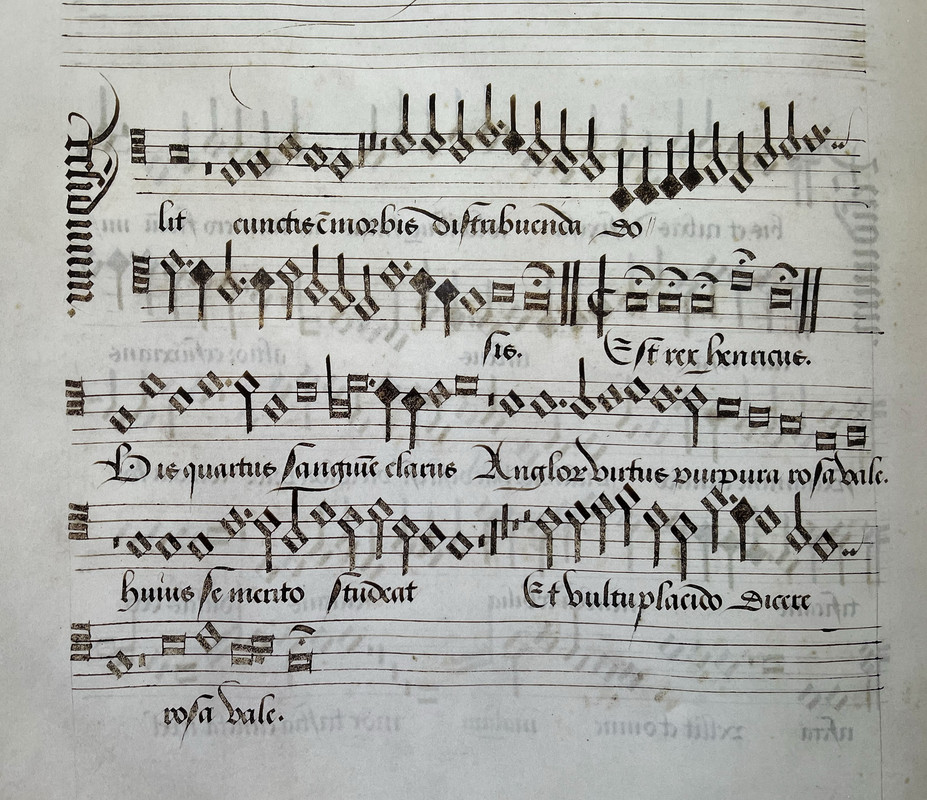 lit cunctis ē morbis distribuenda do
sis. Est rex henricus.
Bis quartus sanguine clarus Anglor virtus purpura rosa vale.
huius se merito studeat Et vultu placido Dicere
rosa vale.